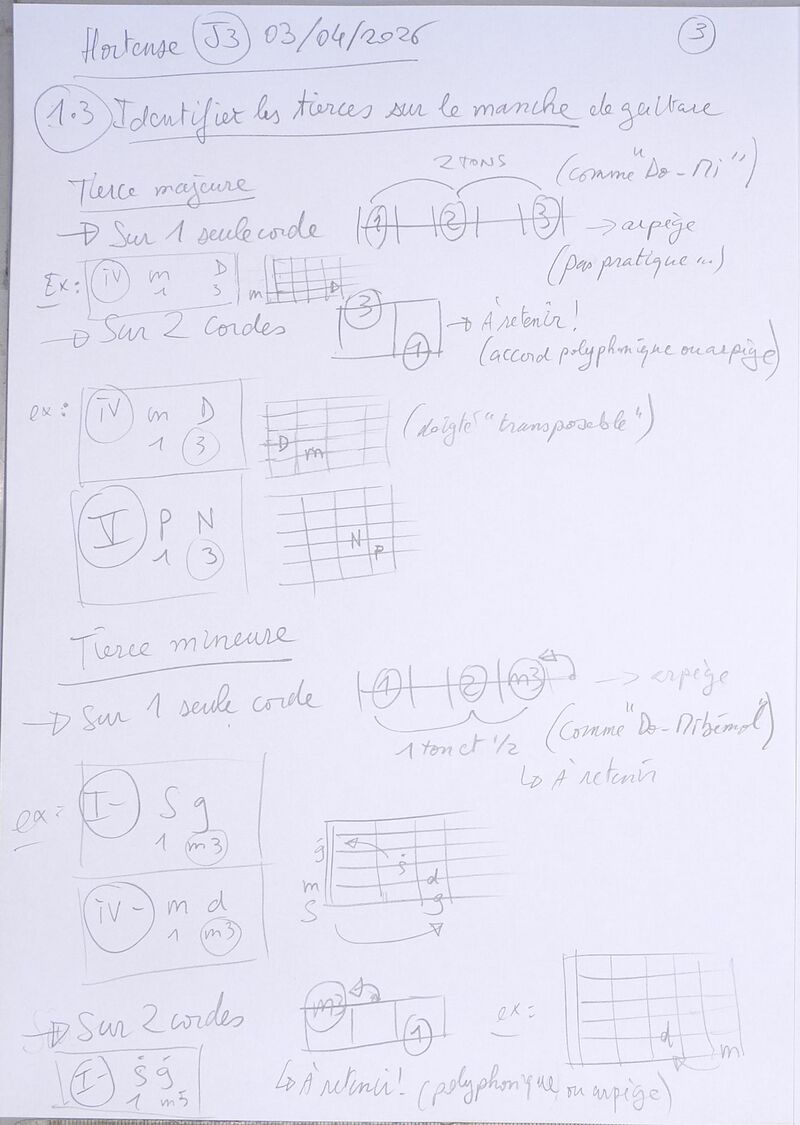 Hortense J3 03/04/2026 3
1.3 Identifier les tierces sur le manche de guitare
Tierce majeure
2 TONS
(comme "Do-Mi")
→ Sur 1 seule corde 1 2 3 → arpège
(pas pratique...)
Ex: IV m D
1 3
m D
→ Sur 2 cordes 3 1 → À retenir!
(accord polyphonique ou arpège)
ex: IV m D
1 3
D m
(doigté "transposable")
V P N
1 3
N
P
Tierce mineure
→ Sur 1 seule corde 1 2 m3 → arpège
1 ton et 1/2
(comme "Do-Mi bémol")
↳ À retenir
ex: I- S g
1 m3
iV- m d
1 m3
g
s
m d
S g
→ Sur 2 cordes m3 1
ex:
d
m
↳ À retenir! (polyphonique ou arpège)
I- s g
1 m3